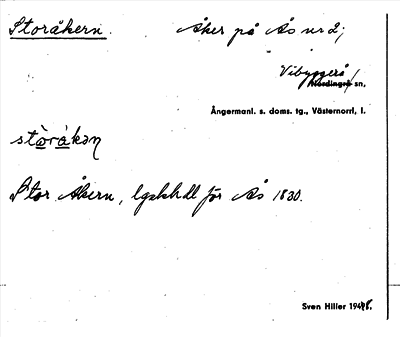 Storåkern. Åker på Ås nr 2;
Vibyggerå
Nordingrå sn,
Ångermanl. s. doms. tg., Västernorrl. l.
stòråkən
Stor Åkern, lgskhdl för Ås 1830.
Sven Hiller 1948.